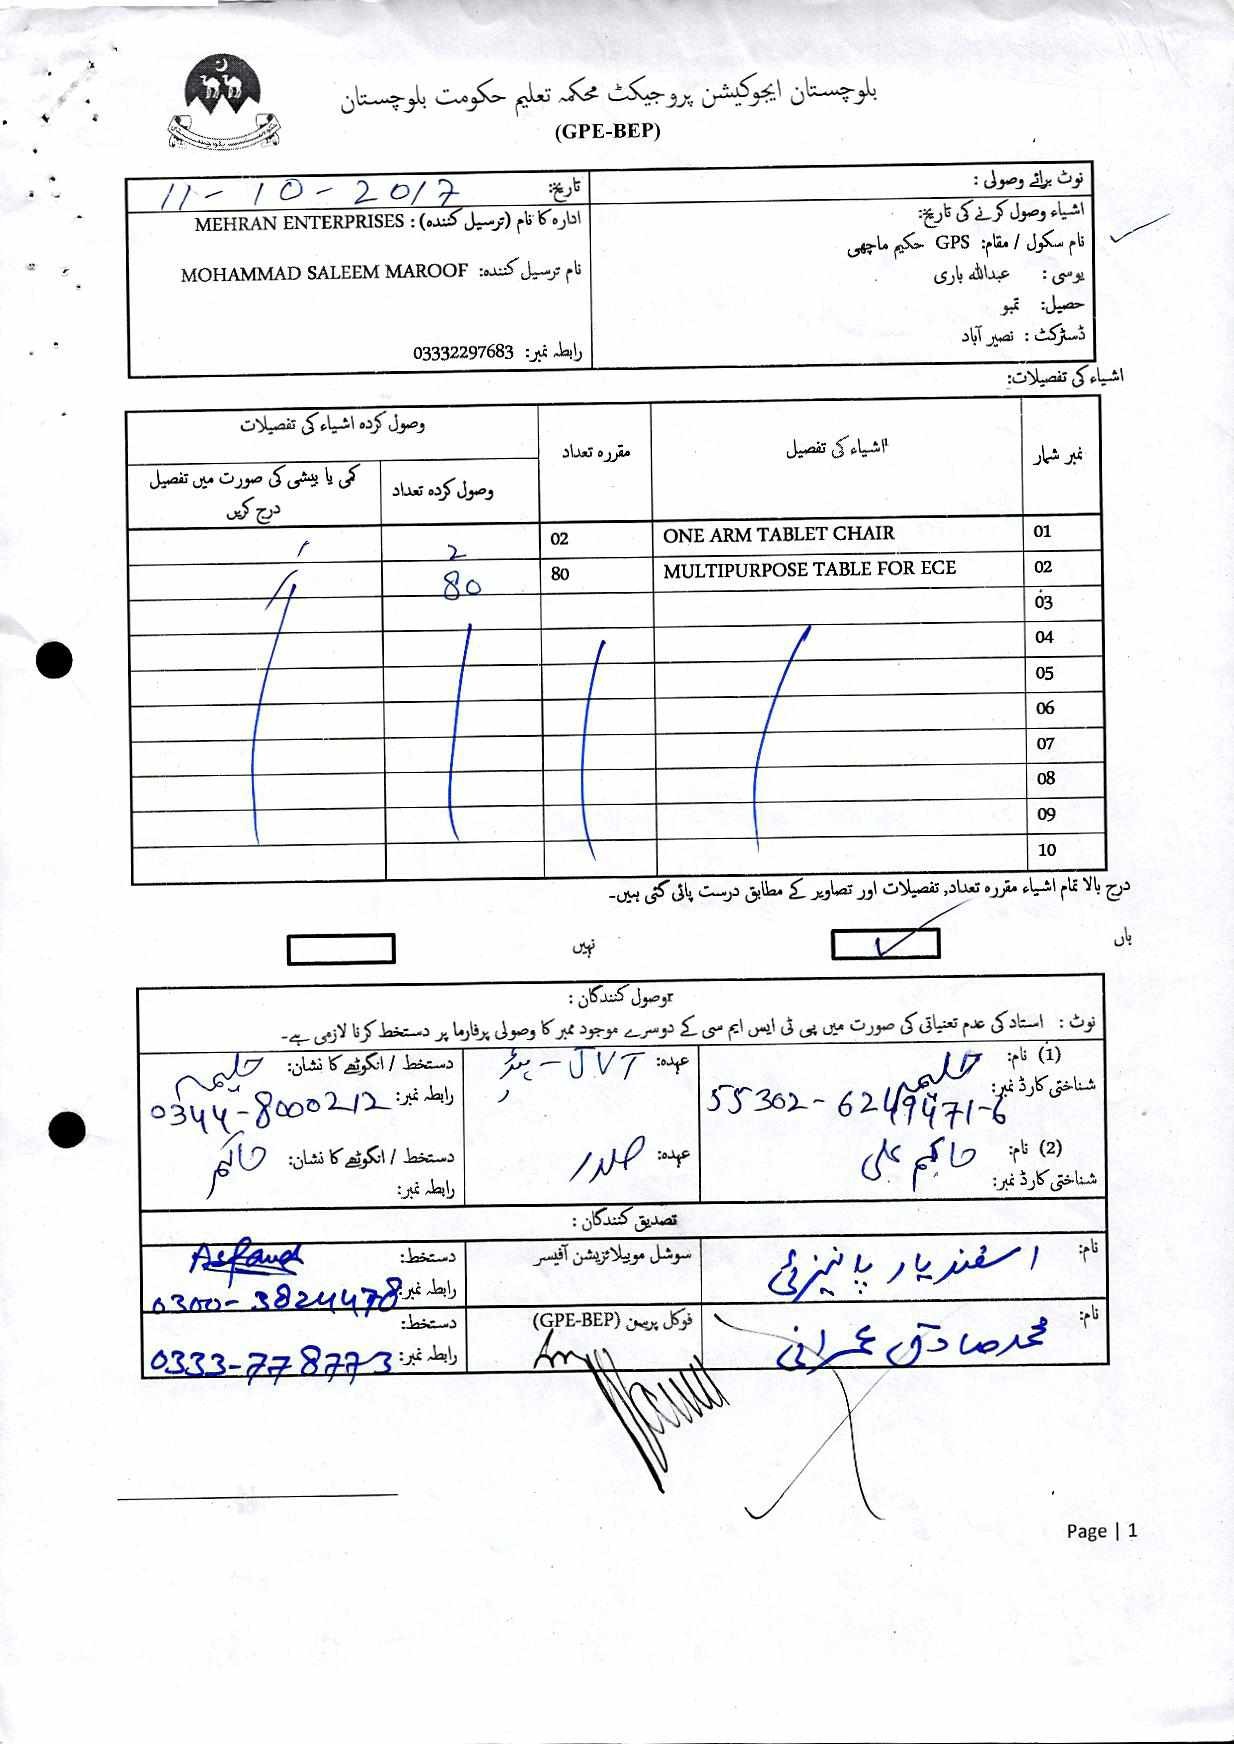 بلوچستان ایجوکیشن پروجیکٹ محکمہ تعلیم حکومت بلوچستان
(GPE-BEP)
نوٹ برائے وصولی :
اشیاء وصول کرنے کی تاریخ:
نام سکول / مقام: GPS حکیم ماچھی
یوسی : عبداللہ باری
حصیل: تمبو
ڈسٹرکٹ : نصیر آباد
تاریخ: 11-10-2017
ادارہ کا نام (ترسیل کنندہ) : MEHRAN ENTERPRISES
نام ترسیل کنندہ: MOHAMMAD SALEEM MAROOF
رابطہ نمبر: 03332297683
اشیاء کی تفصیلات:
نمبر شمار اشیاء کی تفصیل مقررہ تعداد وصول کردہ اشیاء کی تفصیلات
وصول کردہ تعداد کمی یا بیشی کی صورت میں تفصیل درج کریں
01 ONE ARM TABLET CHAIR 02 2
02 MULTIPURPOSE TABLE FOR ECE 80 80
03
04
05
06
07
08
09
10
درج بالا تمام اشیاء مقررہ تعداد, تفصیلات اور تصاویر کے مطابق درست پائی گئی ہیں۔
ہاں نہیں
وصول کنندگان :
نوٹ : استاد کی عدم تعنیاتی کی صورت میں پی ٹی ایس ایم سی کے دوسرے موجود ممبر کا وصولی پرفارما پر دستخط کرنا لازمی ہے۔
(1) نام: حلیمہ عہدہ: JVT - ہیڈ دستخط / انگوٹھے کا نشان: حلیمہ
شناختی کارڈ نمبر: 55302-6249471-6 رابطہ نمبر: 0344-8000212
(2) نام: حاکم علی عہدہ: صدر دستخط / انگوٹھے کا نشان: حاکم
شناختی کارڈ نمبر: رابطہ نمبر:
تصدیق کنندگان :
نام: اسفند یار پانیزئی سوشل موبیلائزیشن آفیسر دستخط: Asfand
رابطہ نمبر: 0300-3824478
نام: محمد صادق عمرانی فوکل پرسن (GPE-BEP) دستخط:
رابطہ نمبر: 0333-778773
Page | 1